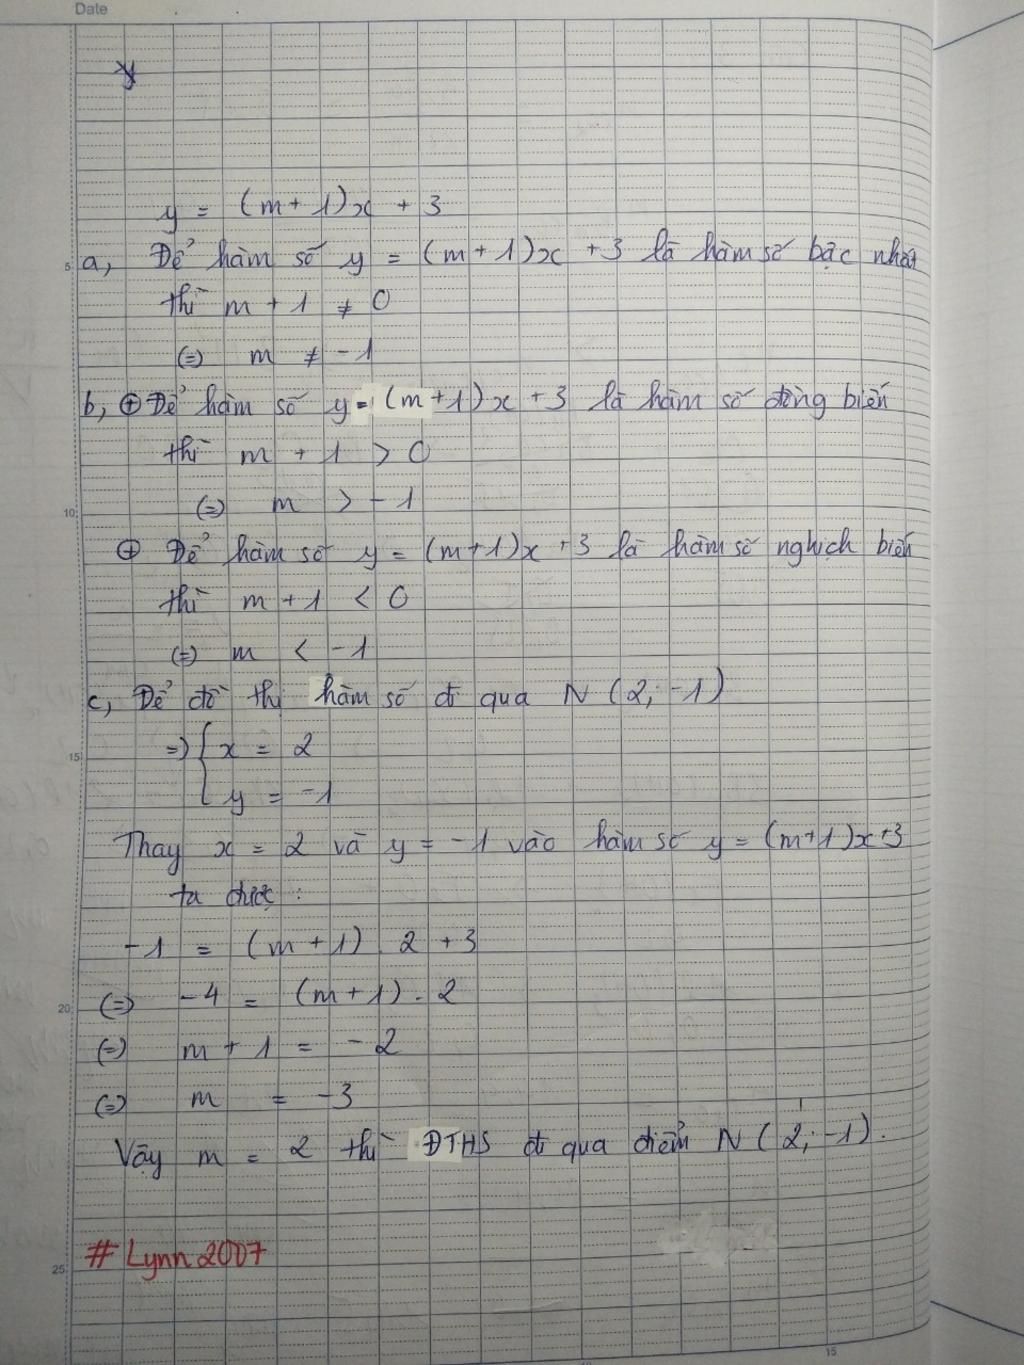 Date
y
y = (m+1)x + 3
5 a, Để hàm số y = (m+1)x +3 là hàm số bậc nhất
thì m + 1 ≠ 0
(=) m ≠ -1
b, ⊕ Để hàm số y = (m+1)x +3 là hàm số đồng biến
thì m + 1 > 0
10 (=) m > -1
⊕ Để hàm số y = (m+1)x +3 là hàm số nghịch biến
thì m+1 < 0
(=) m < -1
c, Để đồ thị hàm số đi qua N (2; -1)
15 =) { x = 2
y = -1
Thay x = 2 và y = -1 vào hàm số y = (m+1)x+3
ta được :
-1 = (m+1) . 2 +3
20 (=) -4 = (m+1) . 2
(=) m + 1 = -2
(=) m = -3
Vậy m = 2 thì ĐTHS đi qua điểm N (2; -1).
25 # Lynn 2007
15